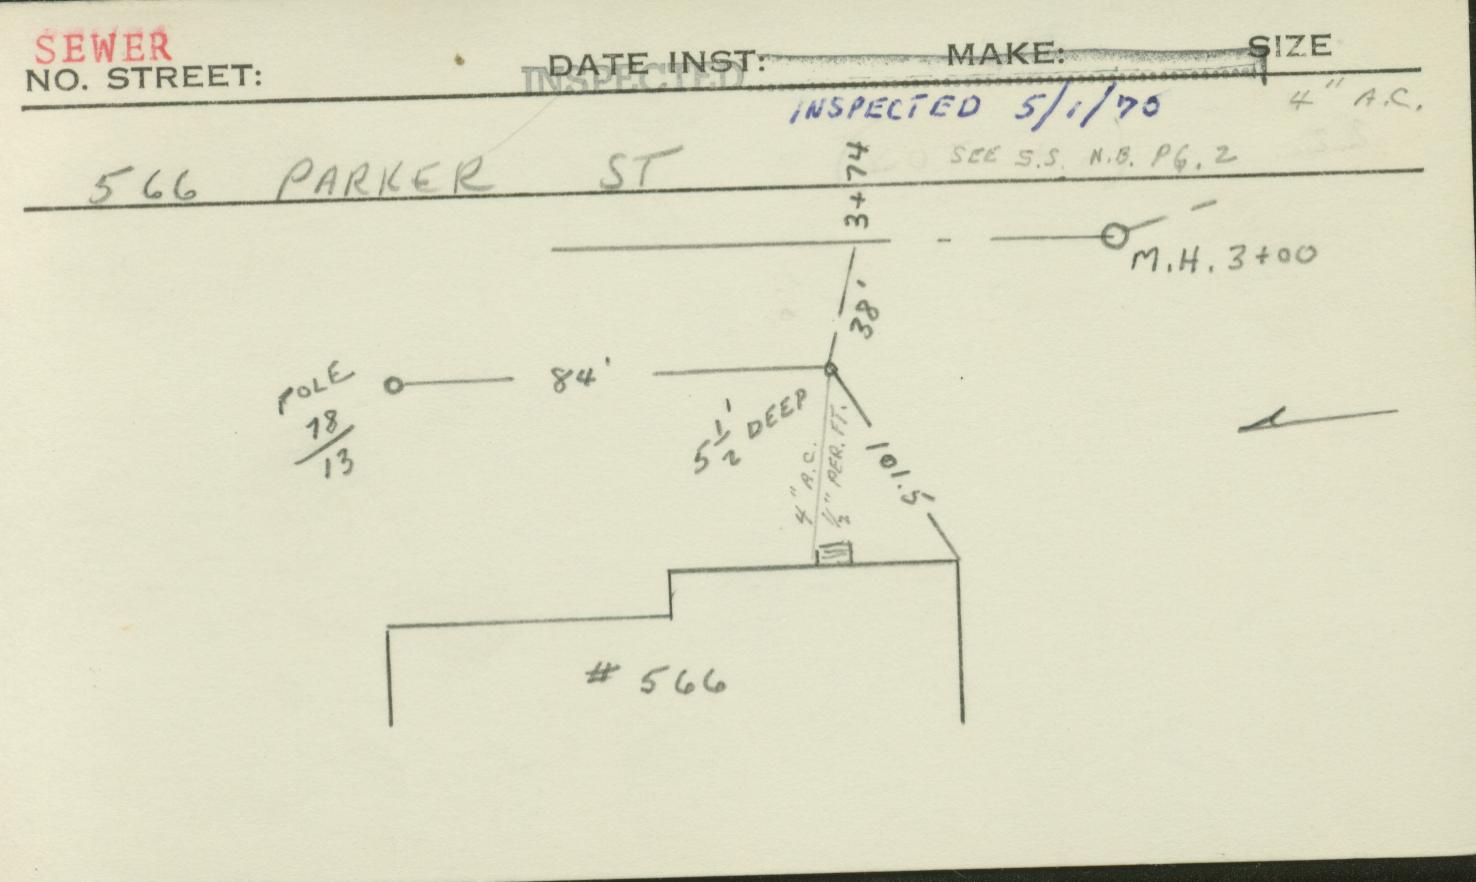 SEWER
NO. STREET: DATE INST: MAKE: SIZE
INSPECTED
INSPECTED 5/1/70 4" A.C.
566 PARKER ST SEE S.S. N.B. PG. 2
3+74
M.H. 3+00
38'
POLE
78/13
84'
5 1/2' DEEP
4" A.C.
1/2" PER. FT.
101.5'
# 566